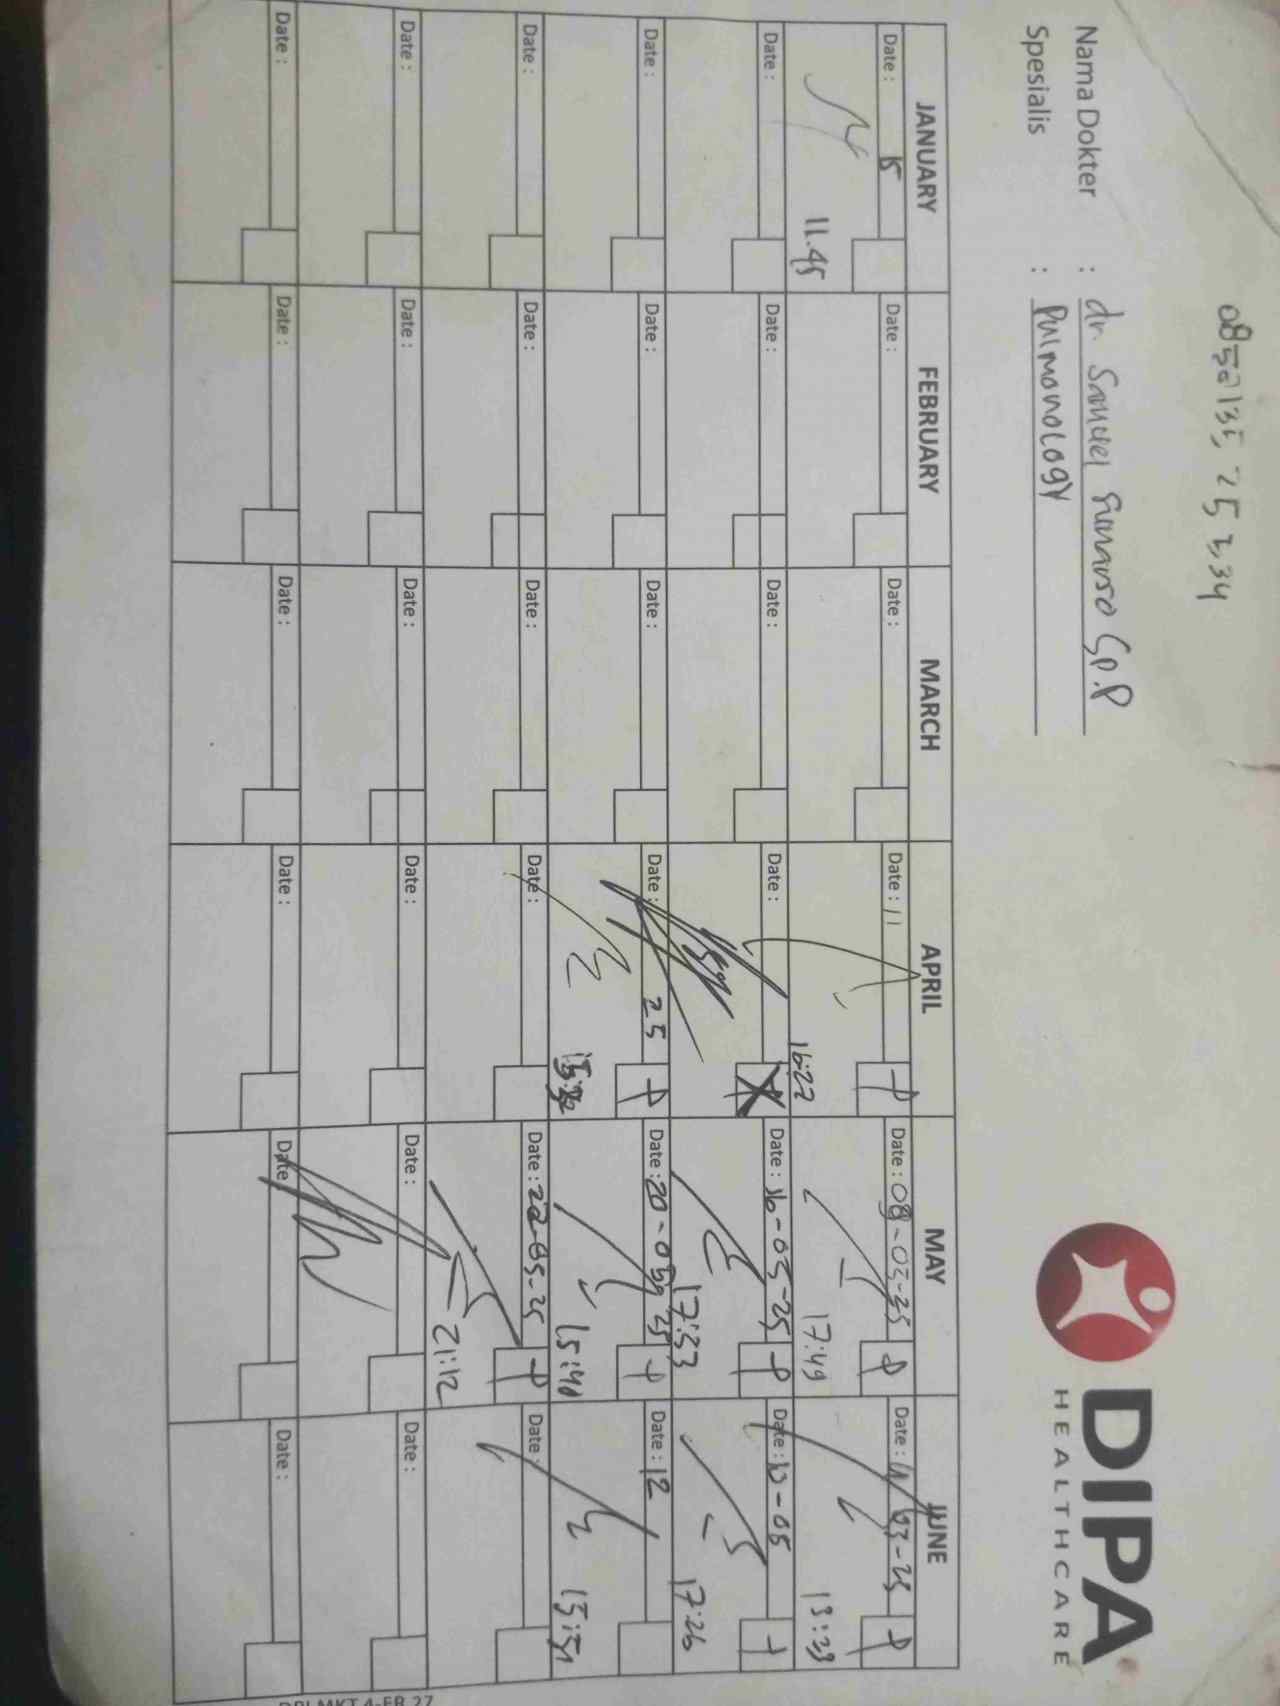 DIPA
HEALTHCARE
Nama Dokter : dr. Samuel Sunarso Sp.P
Spesialis : Pulmonology
JANUARY FEBRUARY MARCH APRIL MAY JUNE
Date : 15 Date : Date : Date : 11 Date : 08-05-25 Date :
11.45 16:22 17:49 13:33
Date : Date : Date : Date : Date : 16-05-25 Date : 10-06
17:33 17:26
Date : Date : Date : Date : 25 Date : 20-05-25 Date : 12
15:40 15:51
Date : Date : Date : Date : Date : 22-05-25 Date :
21:12
Date : Date : Date : Date : Date : Date :
Date : Date : Date : Date : Date Date :